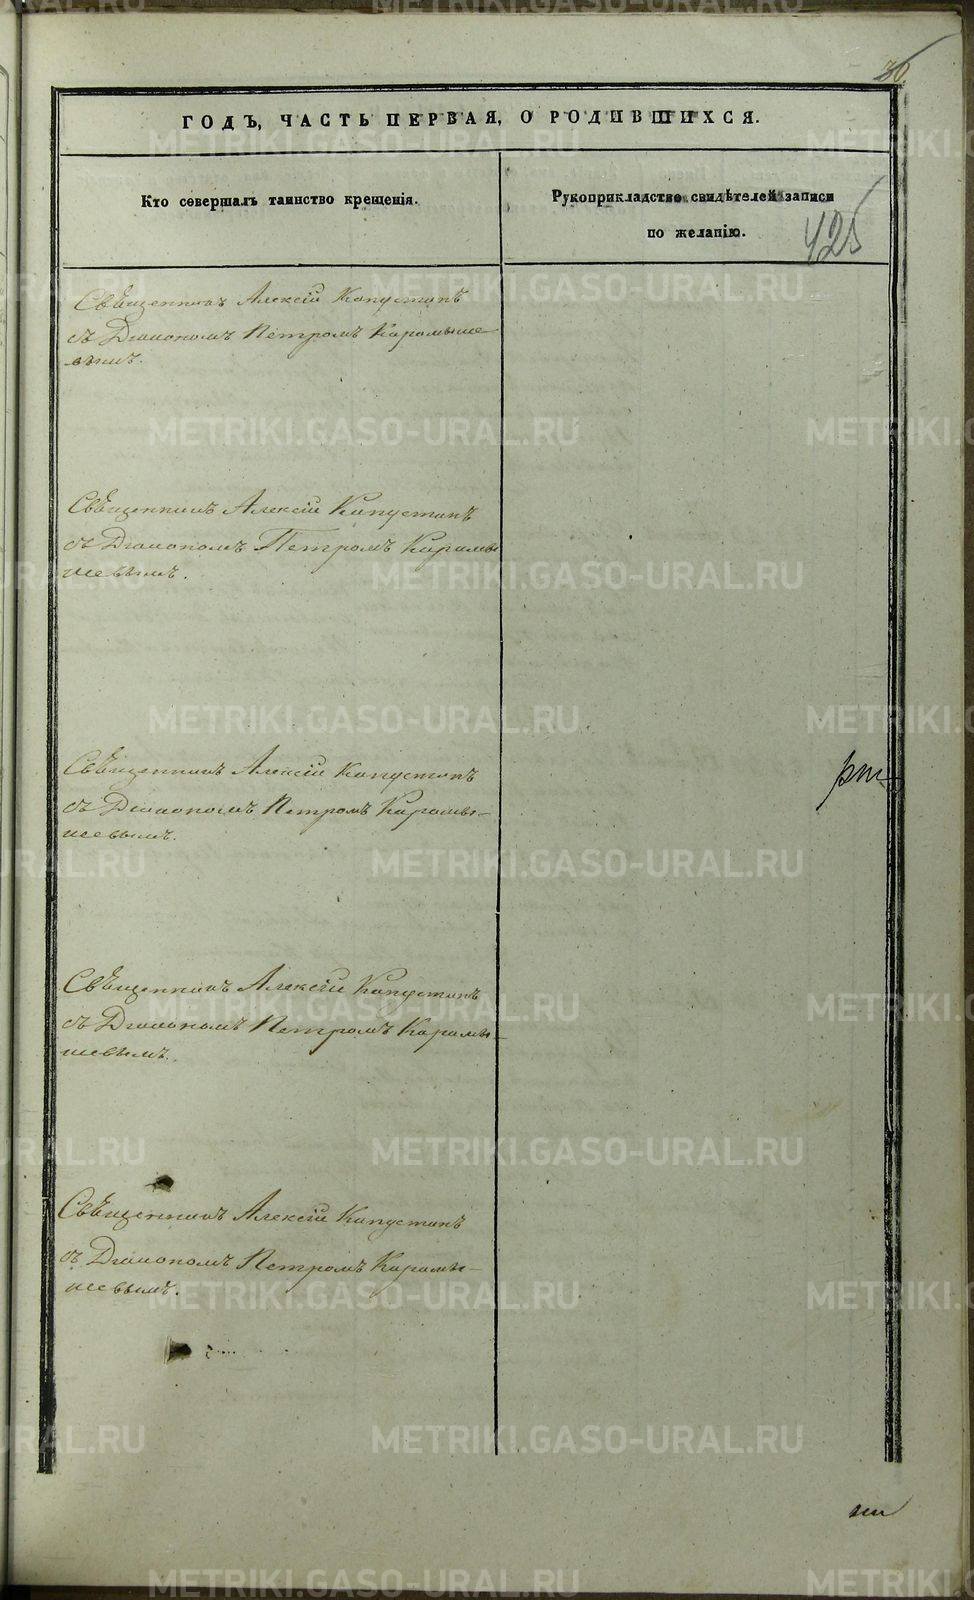 30.
ГОДЪ, ЧАСТЬ ПЕРВАЯ, О РОДИВШИХСЯ.
Кто совершалъ таинство крещенія.
Рукоприкладство свидѣтелей записи
по желанію.
425
Свѣщенникъ Алексій Капустинъ
съ Діакономъ Петромъ Карамыше-
вымъ.
Свѣщенникъ Алексій Капустинъ
съ Діакономъ Петромъ Карамы
шевымъ.
Свѣщенникъ Алексій Капустинъ
съ Діакономъ Петромъ Карамы-
шевымъ.
Свѣщенникъ Алексій Капустинъ
съ Діакономъ Петромъ Карамы-
шевымъ.
Свѣщенникъ Алексій Капустинъ
съ Діакономъ Петромъ Карамы-
шевымъ.
METRIKI.GASO-URAL.RU